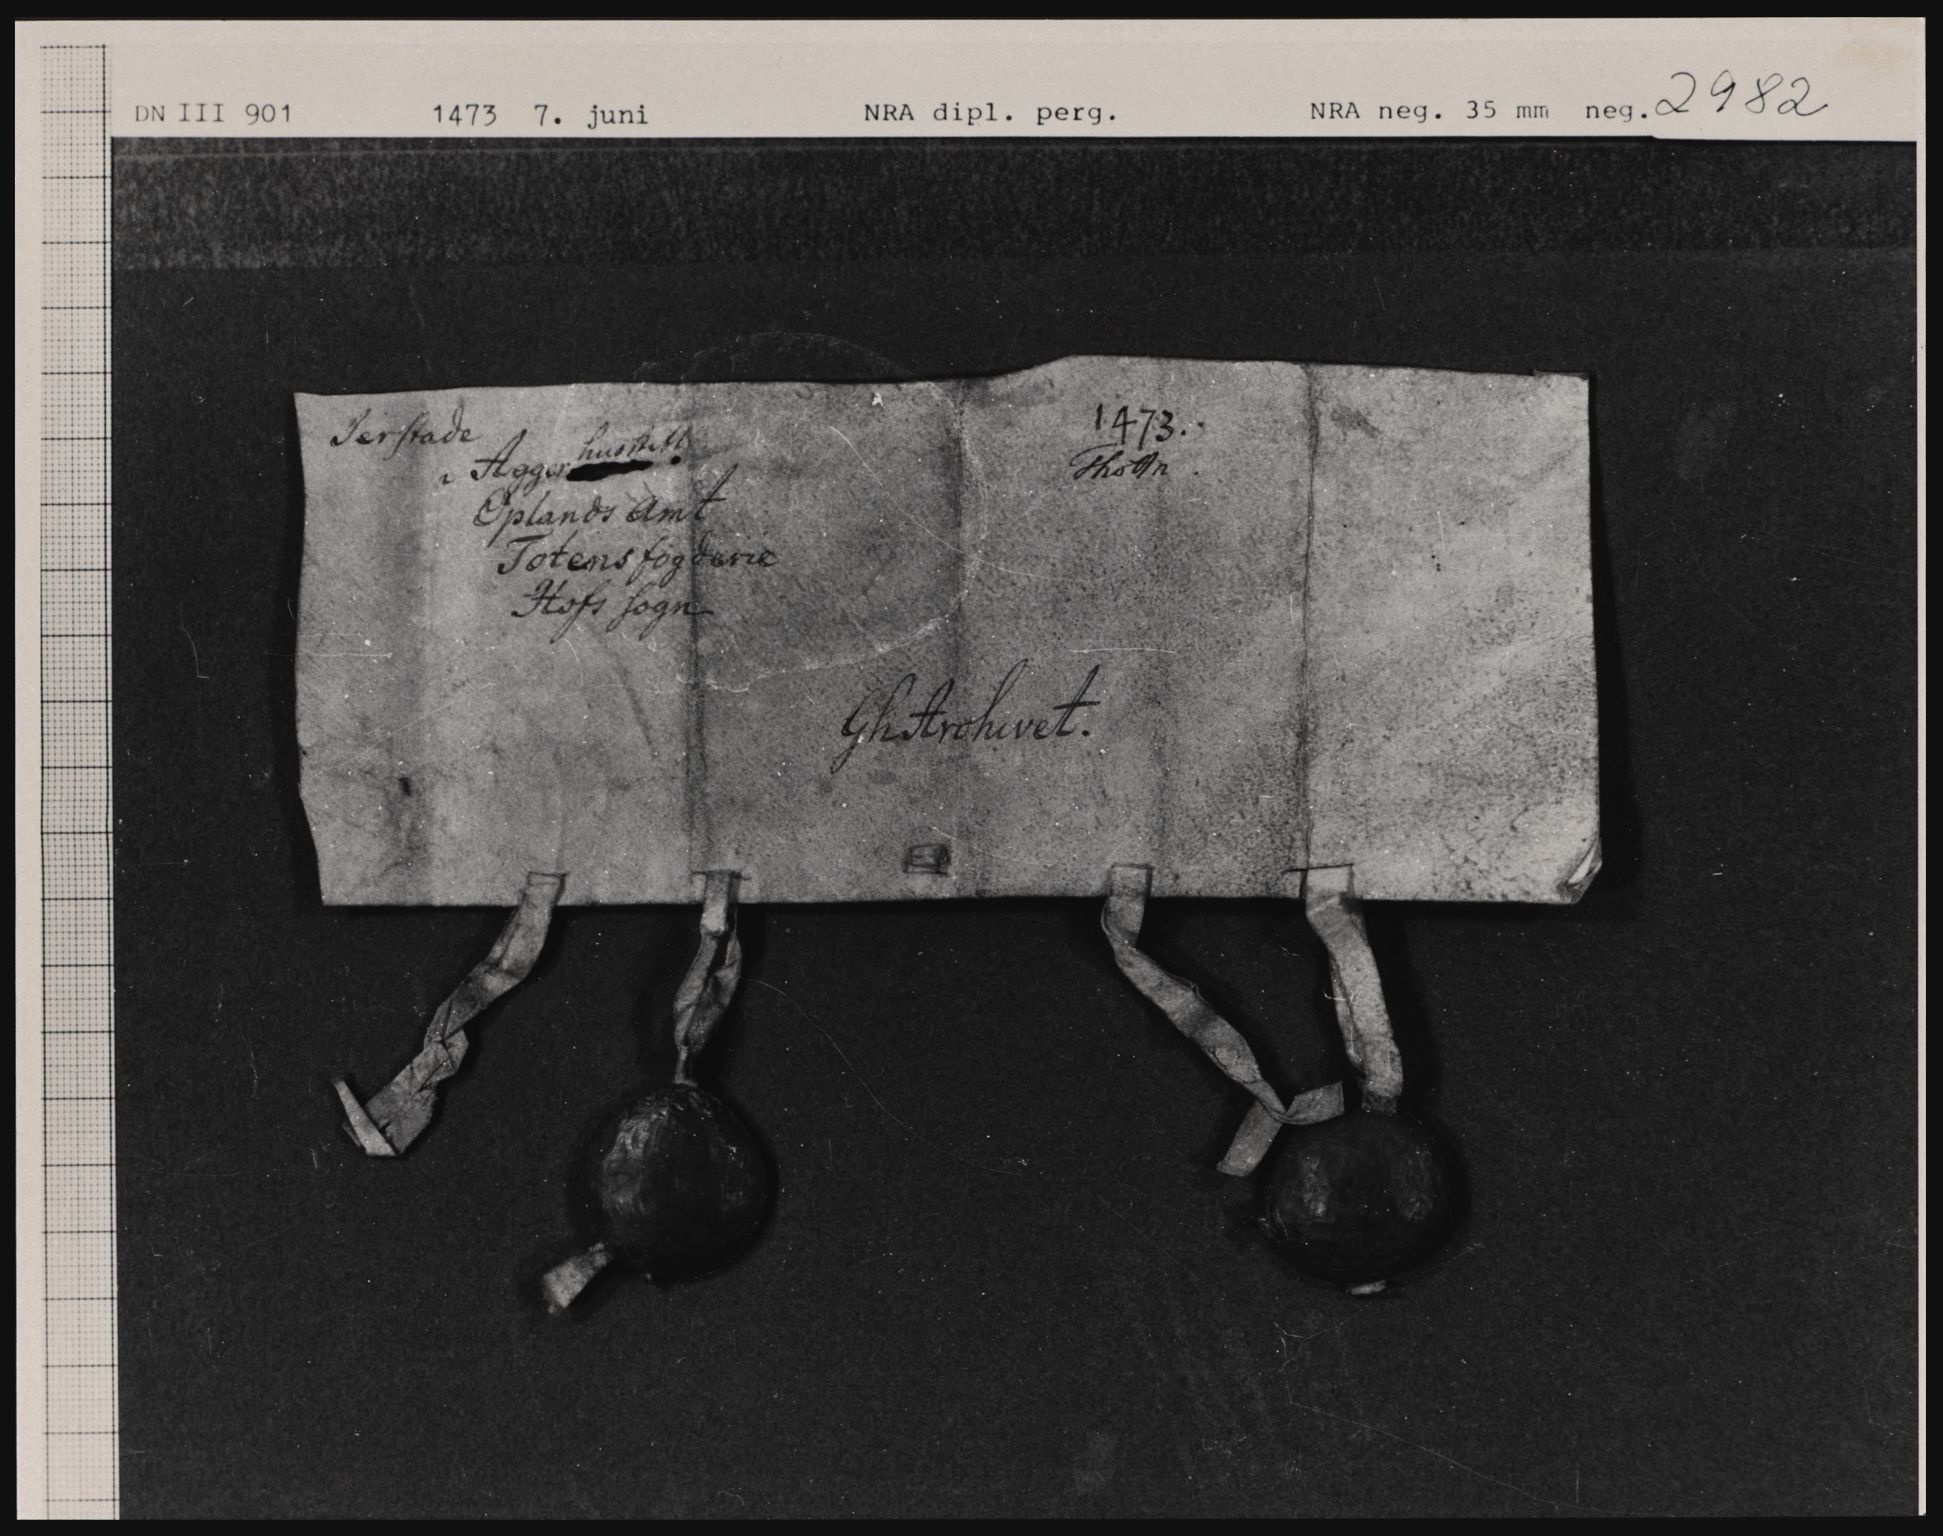 DN III 901 1473 7. juni NRA dipl. perg. NRA neg. 35 mm neg. 2982
Jerstade
i Aggerhus Stift.
Oplands Amt
Totens fogderie
Hofs sogn
1473.
Thottn.
Gh Archivet.